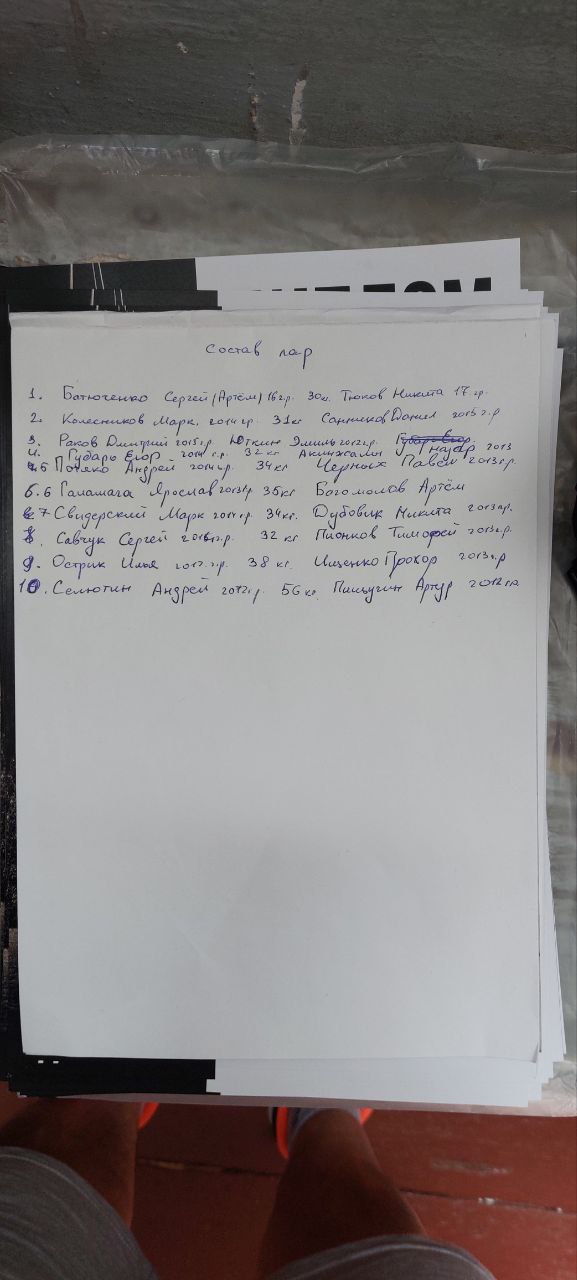 ДИПЛОМ
Состав пар
1. Батюченко Сергей (Артём) 16 г. 30 кг. Тюков Никита 17 гр.
2. Колесников Марк, 2014 г.р. 31 кг Санников Данил 2015 г.р
3. Раков Дмитрий 2015 г.р. Юткин Эмиль 2012 г.р.
4. Гударь Егор 2014 г.р. 32 кг 2013
5 Андрей 2014 г.р. 34 кг Черных Павел 2013 г.р.
6. 6 Галамага Ярослав 2013 г.р 35 кг Богомолов Артём
7 Свидерский Марк 2014 г.р. 34 кг. Дубовик Никита 2013 г.р.
8. Савчук Сергей 32 кг Пионков Тимофей 2013 г.р.
9. Острик Илья 2012 г.р. 38 кг. Ищенко Прохор 2013 г.р
10. Селютин Андрей 2012 г.р. 56 кг. Пичугин Артур 2012 г.р.